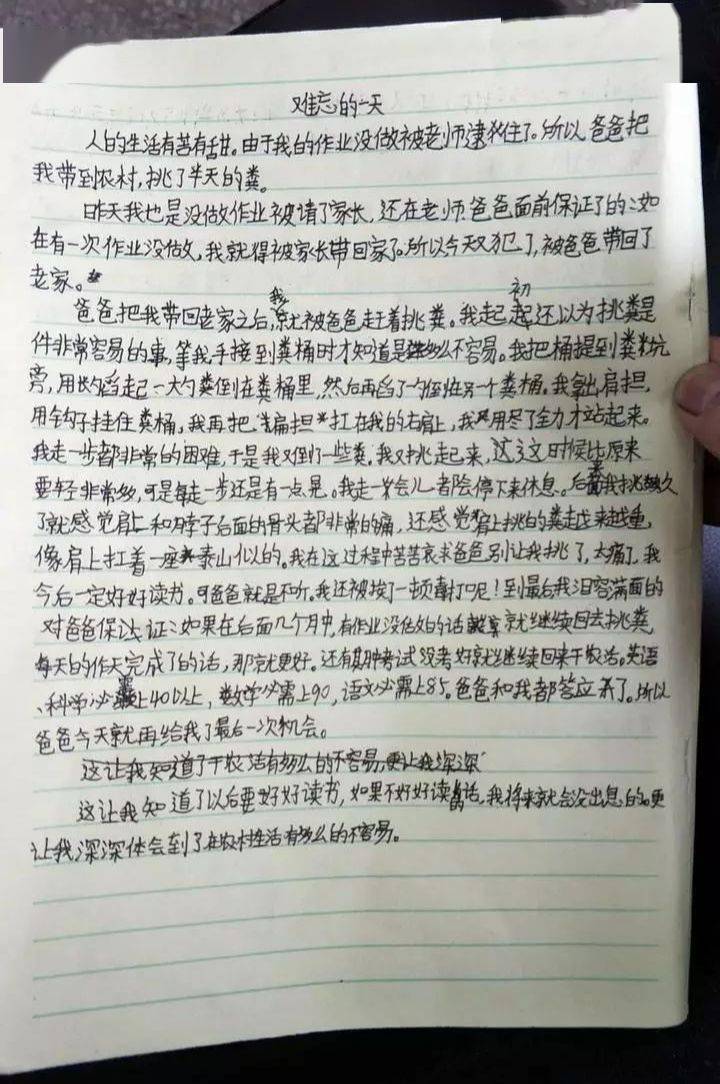 难忘的一天
人的生活有苦有甜。由于我的作业没做被老师逮住了。所以爸爸把
我带到农村,挑了半天的粪。
昨天我也是没做作业被请了家长,还在老师爸爸面前保证了的:如
在有一次作业没做,我就得被家长带回家了。所以今天又犯了,被爸爸带回了
老家。
爸爸把我带回老家之后,我就被爸爸赶着挑粪。我起初还以为挑粪是
件非常容易的事,等我手接到粪桶时才知道是多么不容易。我把桶提到粪坑
旁,用大勺舀起一大勺粪倒在粪桶里,然后再舀了勺倒在另一个粪桶。我拿出肩担,
用钩子挂住粪桶。我再把扁担扛在我的右肩上,我用尽了全力才站起来。
我走一步都非常的困难,于是我又倒了一些粪。我又挑起来,这这时候比原来
要轻非常多,可是每走一步还是有一点晃。我走一会儿都会停下来休息。后来我挑久
了就感觉肩上和脖子后面的骨头都非常的痛,还感觉肩上挑的粪越来越重,
像肩上扛着一座泰山似的。我在这过程中苦苦哀求爸爸别让我挑了,太痛了,我
今后一定好好读书。可爸爸就是不听。我还被挨了一顿毒打呢!到最后我泪容满面的
对爸爸保证:如果在后面几个月中,有作业没做的话就继续回去挑粪,
每天的作天完成了的话,那就更好。还有期中考试没考好就继续回来干农活。英语
、科学必需上40以上,数学必需上90,语文必需上85。爸爸和我都答应了。所以
爸爸今天就再给我了最后一次机会。
这让我知道了干农活有多么的不容易,更让我深深
这让我知道了以后要好好读书,如果不好好读书的话,我将来就会没出息的。更
让我深深体会到了在农村生活有多么的不容易。